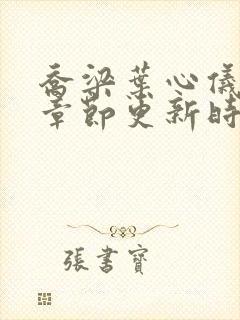 喬梁葉心儀
章節更新時
張書寶